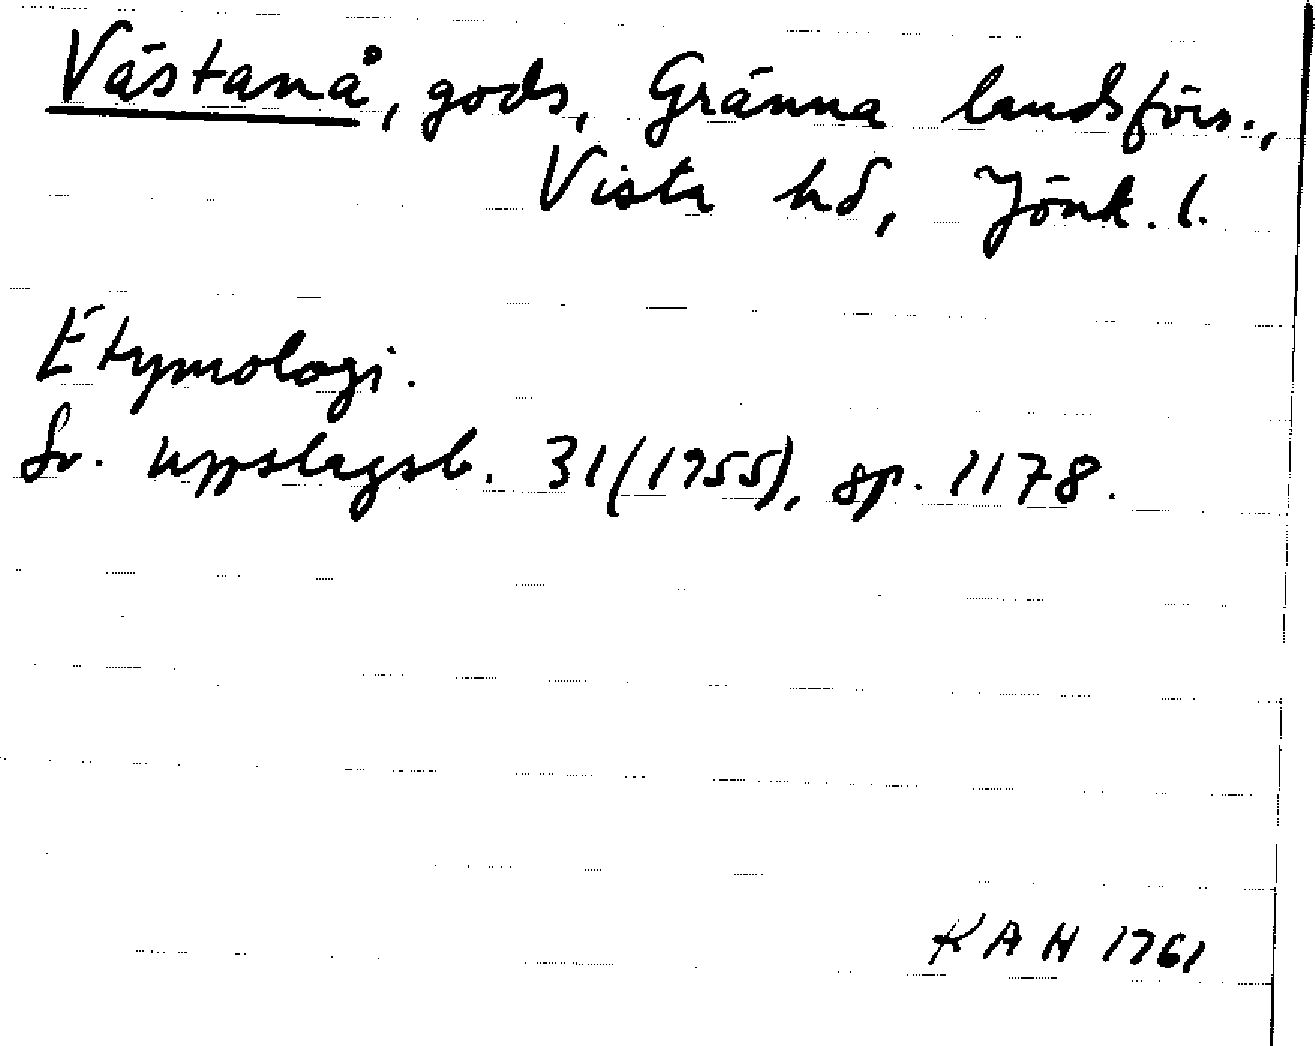 Västanå, gods, Gränna landsförs.,
Vista hd, Jönk. l.
Etymologi.
Sv. uppslagsb. 31(1955), sp. 1178.
KAH 1961